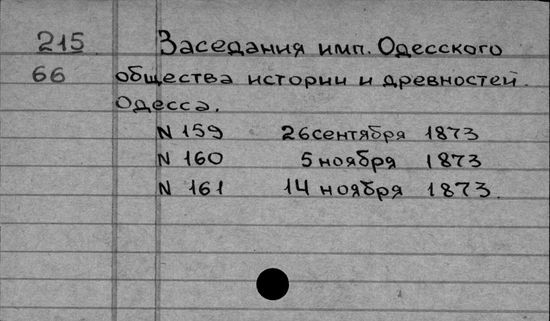 215 Заседания имп. Одесского
66 общества истории и древностей.
Одесса.
N 159 26 сентября 1873
N 160 5 ноября 1873
N 161 14 ноября 1873.